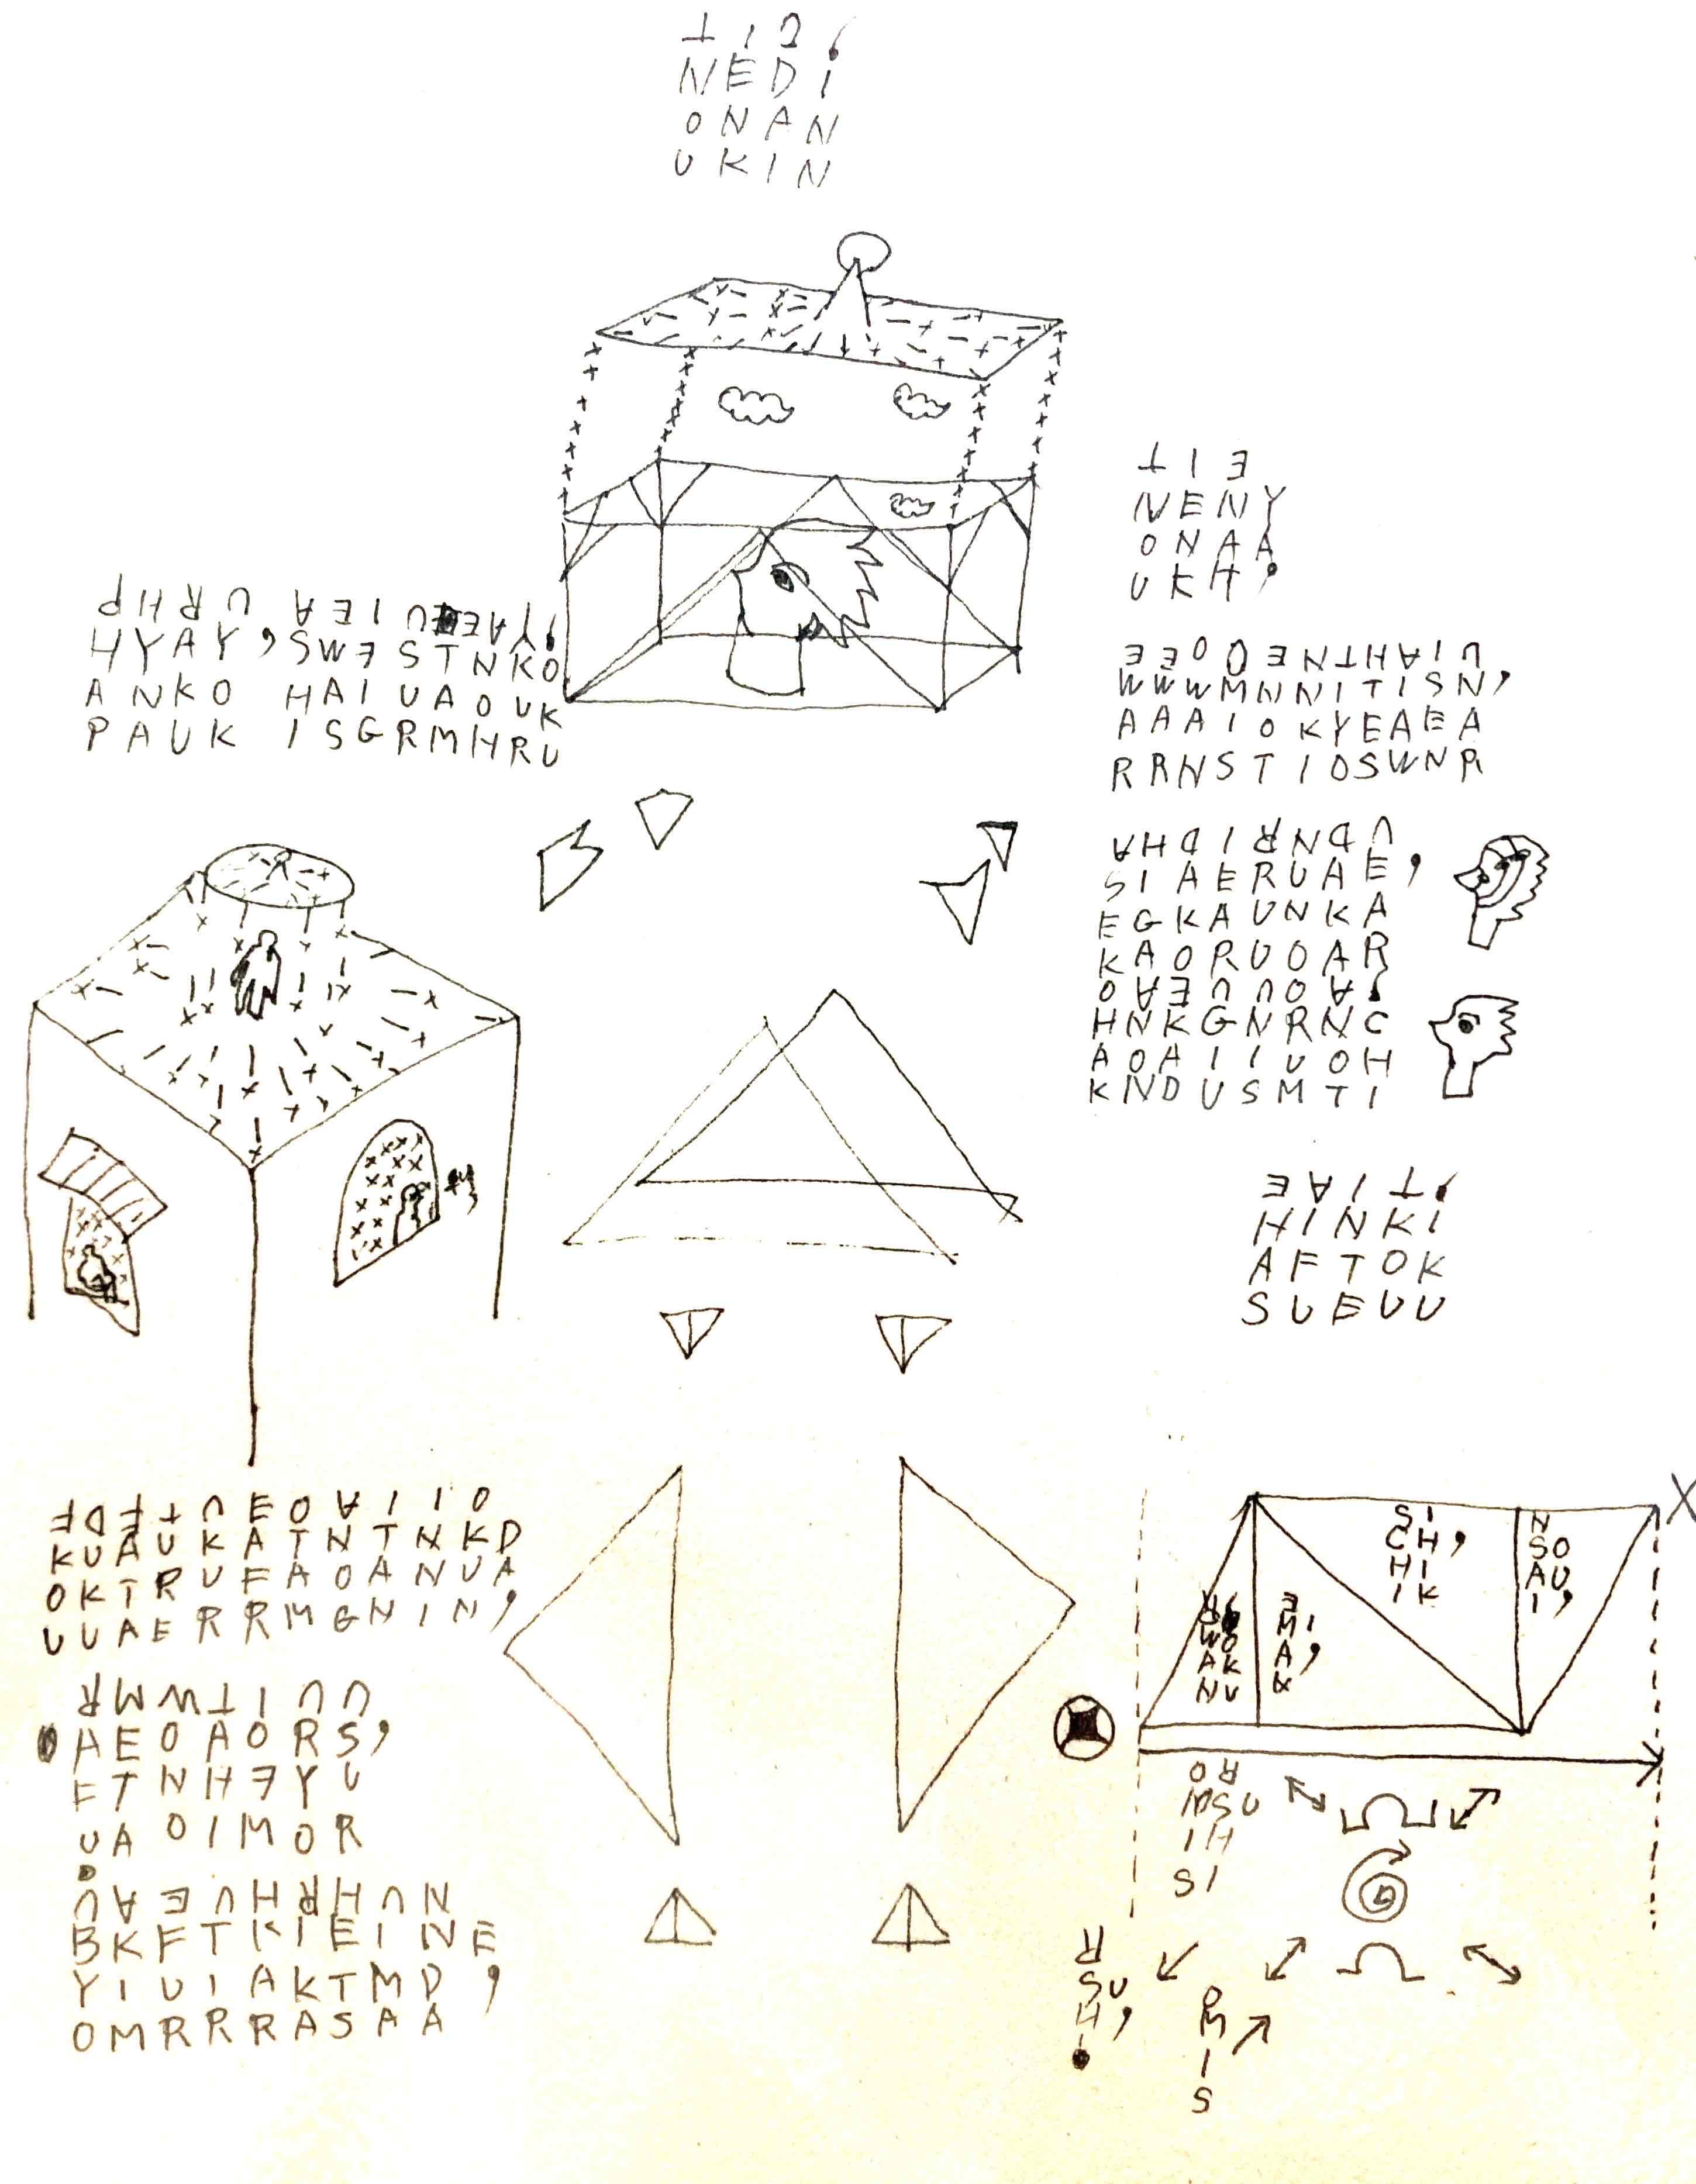 T I U ,
N E D I
O N A N
U K I N
T I E
N E N Y
O N A A
U K H ,
P H R U A E I U E A Y ,
H Y A Y , S W E S T N K O
A N K O H A I U A O U K
P A U K I S G R M H R U
E E O O E N T H A I U
W W W M N N I T I S N ,
A A A I O K Y E A E A
R R N S T I O S W N R
A H D I R N D U
S I A E R U A E ,
E G K A U N K A
K A O R U O A R
O A E U U O A ,
H N K G N R N C
A O A I I U O H
K N D U S M T I
E A I T ,
H I N K I
A F T O K
S U E U U
F D E T U E O A I I O
K U A U K A T N T N K D
O K T R U F A O A N U A
U U A E R R M G N I N ,
R M W T I U U
A E O A O R S ,
F T N H E Y U
U A O I M O R
U A E U H R H U N
B K F T K I E I N E
Y I U I A K T M D ,
O M R R R A S A A
S I
C H ,
H I
I K
N
S O
A U ,
I
W O
A K
N U
E
M I
A ,
K
X
O R
M S U
I H
S I
R
S U
H ,
I
O
M
I
S